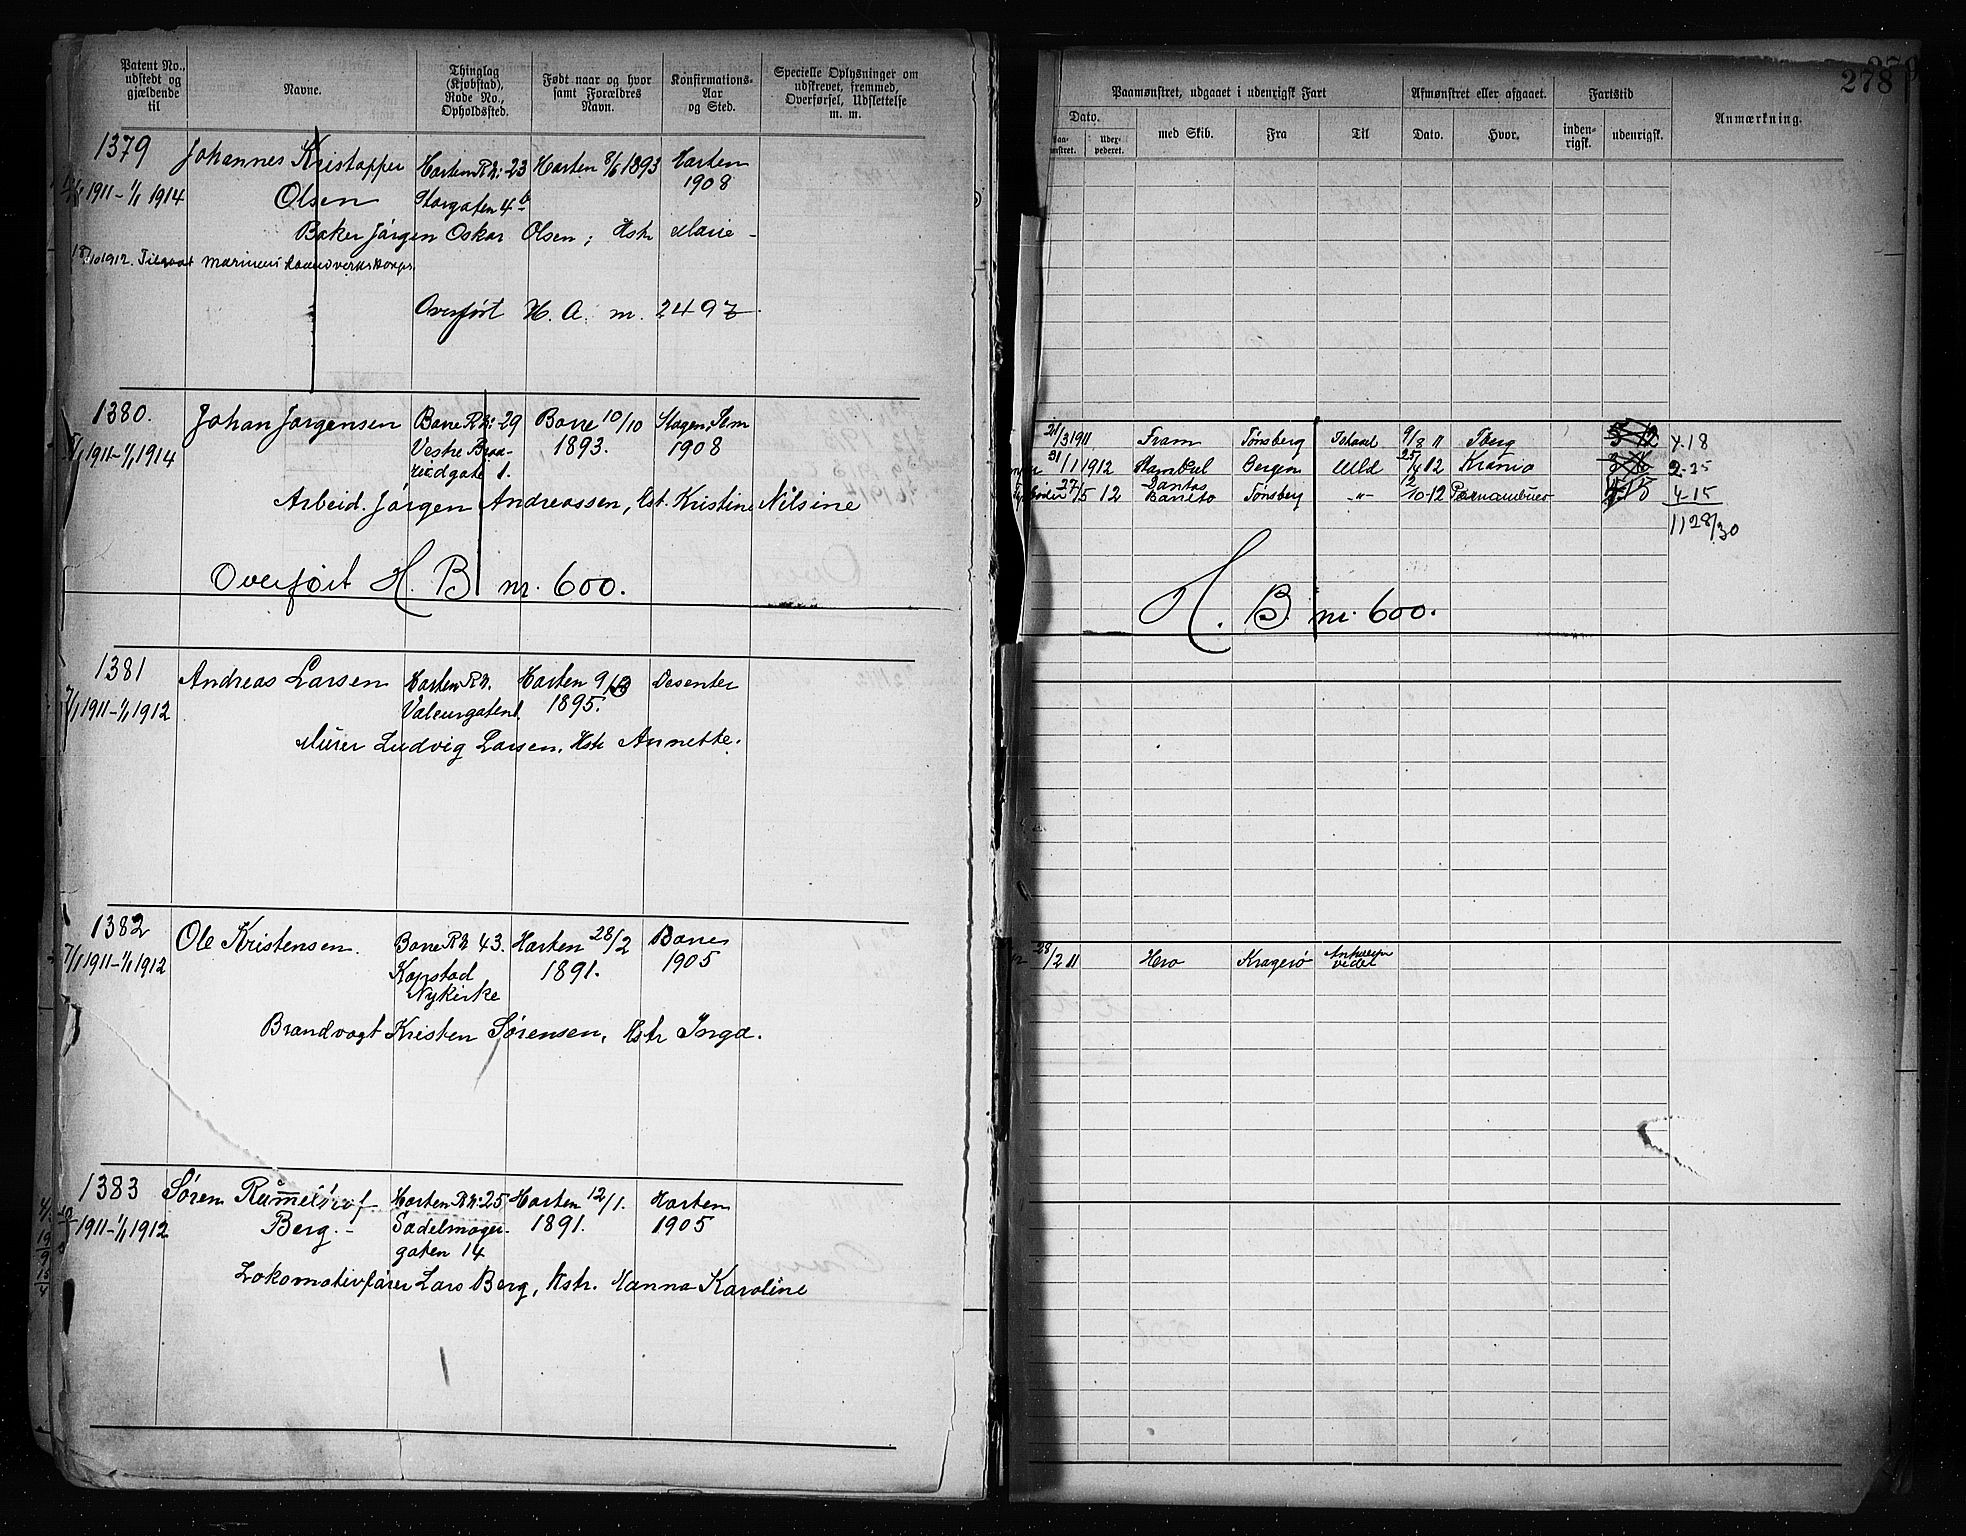 Patent No., udstedt og gjældende til
Navne.
Thinglag (Kjøbstad), Rode No., Opholdssted.
Født naar og hvor samt Forældres Navn.
Konfirmations-Aar og Sted.
Specielle Oplysninger om udskrevet, fremmed, Overførsel, Udslettelse m. m.
1379 Johannes Kristopher Horten R.N: 23 Horten 8/6 1893 Horten
1911–1/1 1914 Olsen Storgaten 4 b 1908
Baker Jørgen Oskar Olsen; Hstr Marie –
18/10 1912. Tilgaat Marinens haandverkskorps.
Overført H. A. nr. 2497
1380. Johan Jørgensen Borre R.N: 29 Borre 10/10 Slagen, Sem
1911–1/1 1914 Vestre 1893. 1908
1.
Arbeid. Jørgen Andreassen, Hst. Kristine Nilsine
Overført H. B nr. 600.
1381 Andreas Larsen Horten R.N. Horten 9/ Desenter
7/1 1911–1/1 1912 1895.
Murer Ludvig Larsen, Hstr Annette.
1382 Ole Kristensen Borre R.N 43. Horten 28/2 Borre
7/1 1911–1/1 1912 Kopstad 1891. 1905
Nykirke
Brandvagt Kristen Sørensen, Hstr Inga.
1383 Søren Horten R.N: 25 Horten 12/1. Horten
1911–1/1 1912 Berg. – Sadelmager- 1891. 1905
gaten 14
Lokomotivfører Lars Berg, Hstr. Hanna Karoline
278
Paamønstret, udgaaet i udenrigsk Fart
Afmønstret eller afgaaet.
Fartstid
Anmærkning.
Dato.
med Skib.
Fra
Til
Dato.
Hvor.
inden-rigsk.
udenrigsk.
21/3 1911 Fram Tønsberg 9/8 11 Tberg 4-18
31/1 1912 Bergen Ubd 25/4 12 2-25
27/5 12 Tønsberg –"– 12/10-12 Pernambuco 4-15
1128/30
H. B. nr. 600.
28/2 11 Hero Kragerø